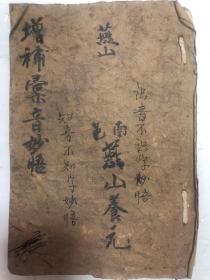 增補彙音妙悟
燕山
南邑
燕山養元
知音不知字妙悟
識音不識字妙悟